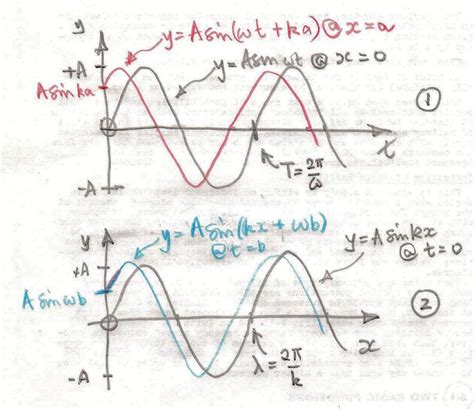 y
y = A sin(ωt + ka) @ x = a
+A
y = A sin ωt @ x = 0
A sin ka
①
t
T = 2π/ω
-A
y
y = A sin(kx + ωb)
@ t = b
y = A sin kx
@ t = 0
+A
A sin ωb
②
x
λ = 2π/k
-A